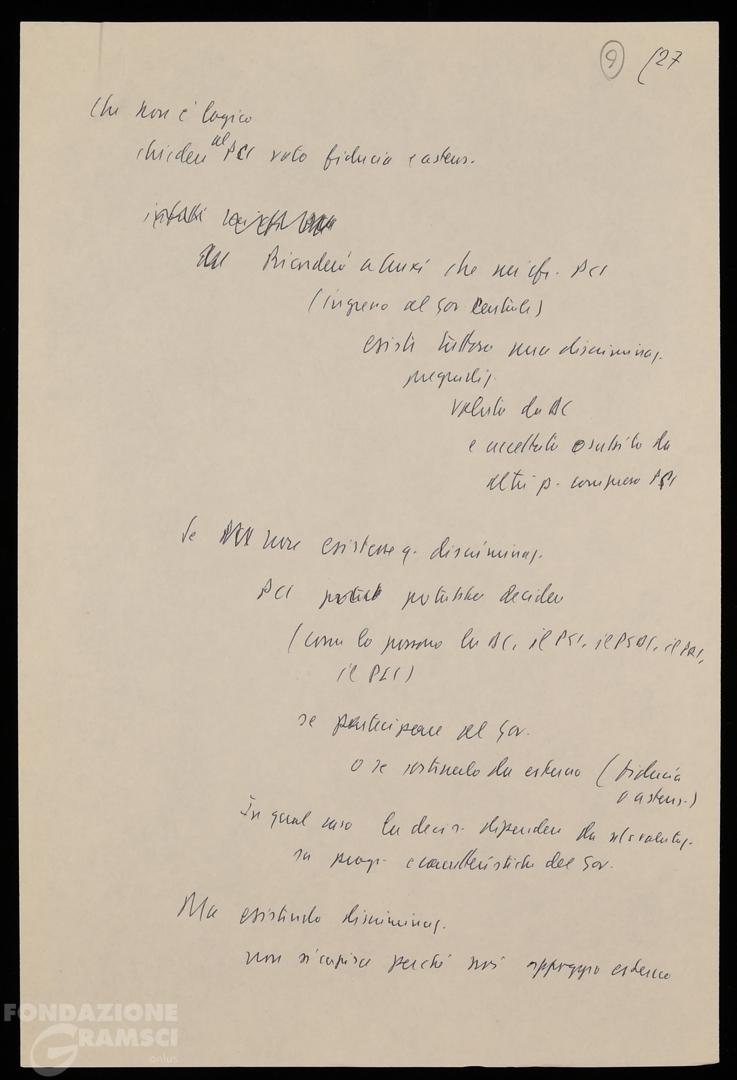 9 (27
che non è logico
chiedere al PCI voto fiducia e astens.
infatti
Ricorderò a tutti che nei cfr. PCI
(ingresso al Gov centrale)
esiste tuttora una discriminaz.
pregiudiz.
voluta da DC
e accettata o subita da
altri p. compreso PSI
Se non esistesse q. discriminaz.
PCI potrebbe decidere
(come lo possono la DC, il PSI, il PSDI, il PRI,
il PLI)
se partecipare al Gov.
o se sostenerlo da esterno (fiducia
o astens.)
In qual caso la decis. dipendere da valutaz.
su progr. e caratteristiche del Gov.
Ma esistendo discriminaz.
non si capisce perché noi appoggio esterno
FONDAZIONE
GRAMSCI
onlus